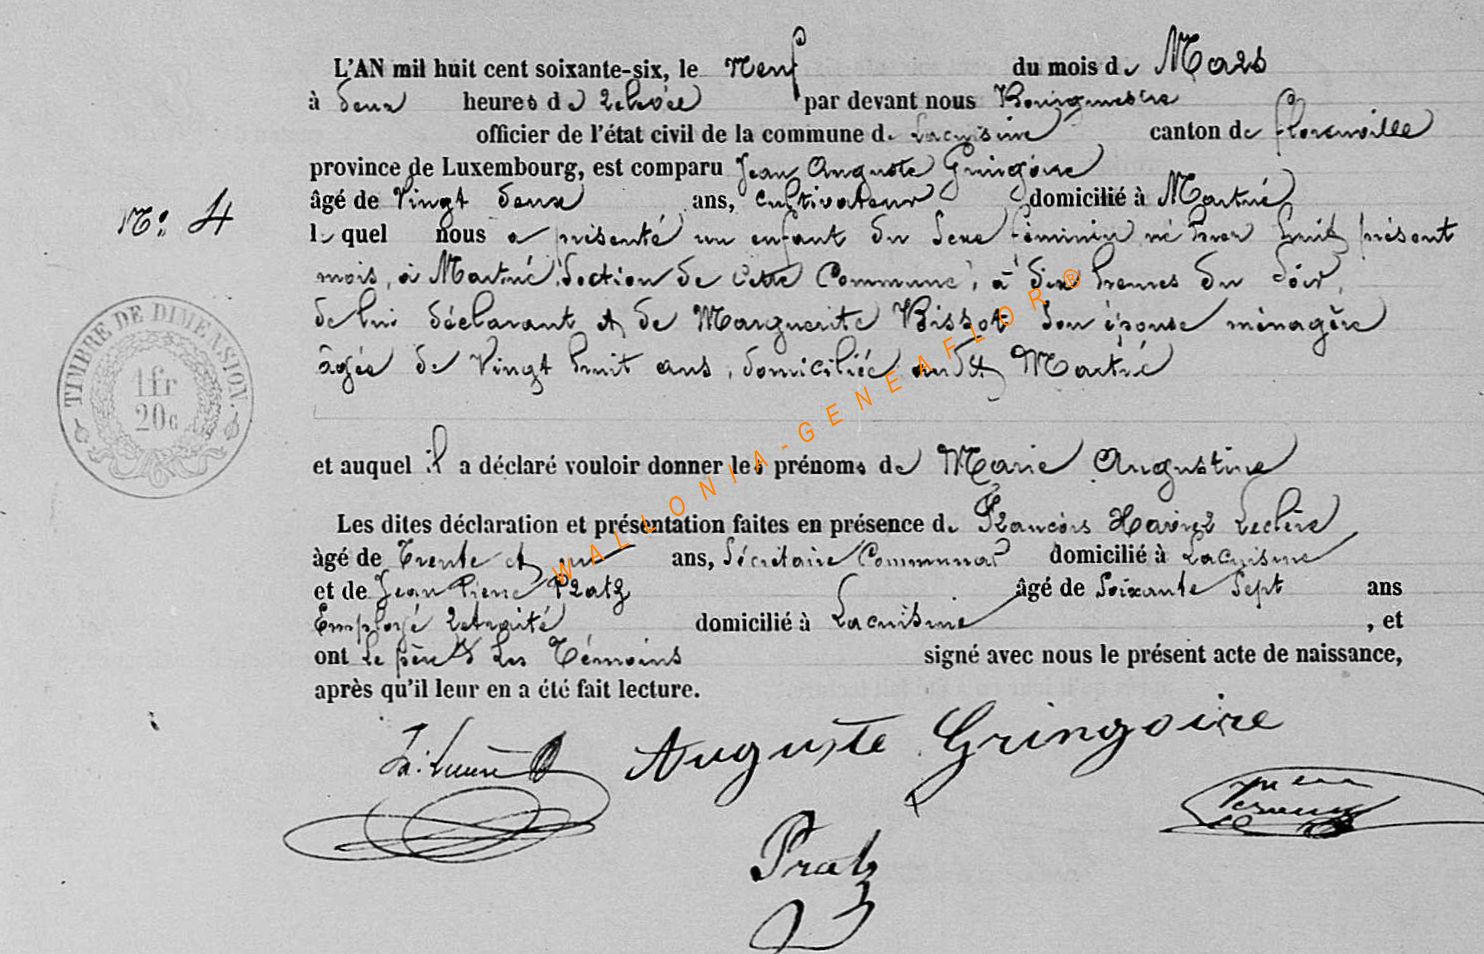 L'AN mil huit cent soixante-six, le neuf du mois de Mars
à deux heures de relevée par devant nous Bourgmestre
officier de l'état civil de la commune de Lacuisine canton de Florenville
province de Luxembourg, est comparu Jean Auguste Gringoire
âgé de Vingt deux ans, Cultivateur domicilié à Martué
N° 4
le quel nous a présenté un enfant du Sexe féminin né hier huit présent
mois, à Martué Section de cette Commune, à dix heures du Soir,
de lui déclarant et de Marguerite Bissot Son épouse ménagère
âgée de Vingt huit ans, domiciliée audit Martué
TIMBRE DE DIMENSION.
1fr
20c
et auquel il a déclaré vouloir donner les prénoms de Marie Augustine
Les dites déclaration et présentation faites en présence de François Xavier Leclère
âgé de Trente et un ans, Sécrétaire Communal domicilié à Lacuisine
et de Jean Pierre Pratz âgé de Soixante Sept ans
Employé retraité domicilié à Lacuisine , et
ont Le père et Les Témoins signé avec nous le présent acte de naissance,
après qu'il leur en a été fait lecture.
Auguste Gringoire
Pratz
WALLONIA-GENEAFLOR®